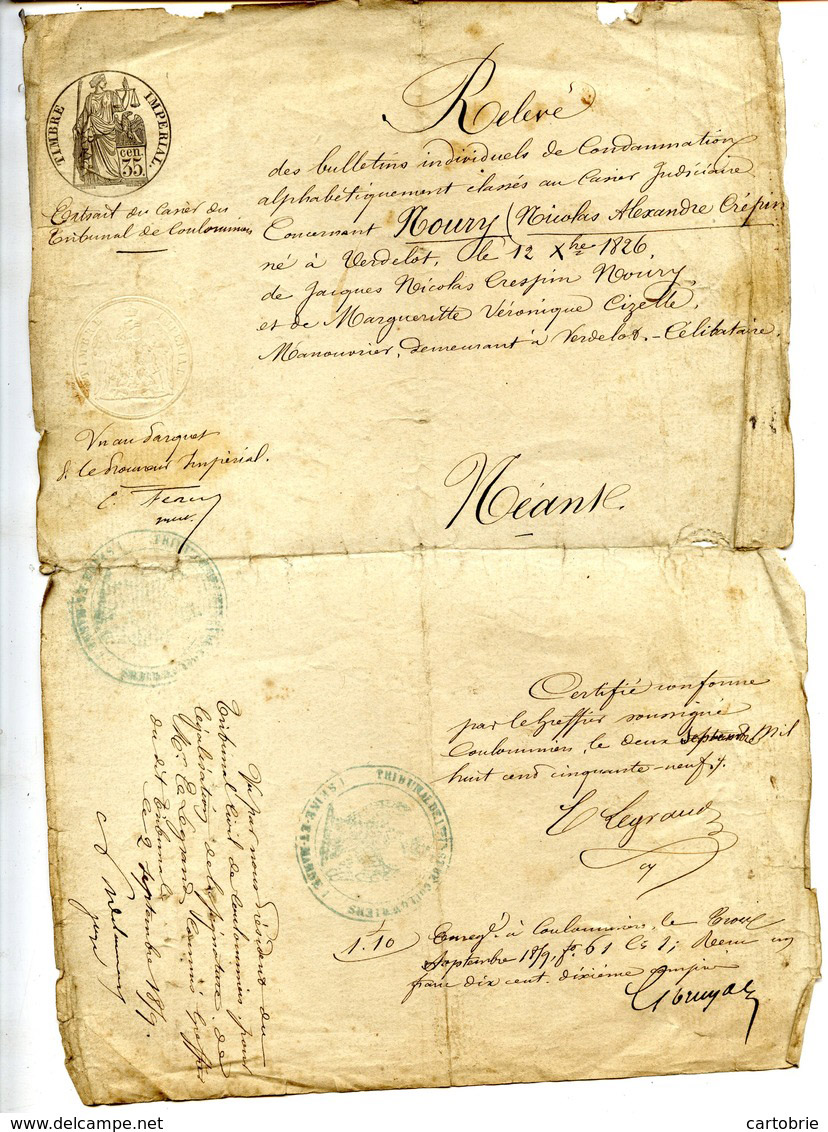 TIMBRE IMPERIAL.
35 cen.
Relevé
des bulletins individuels de Condamnation
alphabétiquement classés au Casier Judiciaire
Concernant Noury (Nicolas Alexandre Crépin
né à Verdelot, le 12 Xbre 1826,
de Jacques Nicolas Crespin Noury,
et de Margueritte Véronique Cizelle,
Manouvrier, demeurant à Verdelot. - Célibataire.
Extrait du Casier du
Tribunal de Coulommiers
Vu au Parquet
P. le Procureur Impérial.
Néant.
Certifié conforme
par le Greffier soussigné
Coulommiers, le deux Septembre Mil
huit cent cinquante-neuf.
E Legrand
Vu par nous Président du
Tribunal Civil de Coulommiers pour
légalisation de la signature de
Mr. Legrand Commis Greffier
du dit Tribunal
le 2 Septembre 1859.
juge
TRIBUNAL DE 1ERE INST. DE COULOMMIERS
SEINE-ET-MARNE
TRIBUNAL DE 1ERE INST. DE COULOMMIERS
SEINE-ET-MARNE
1.10
Enregé. à Coulommiers, le Trois
Septembre 1859, fo. 61 Cs 1; Recu un
franc dix cent. dixième compris
cartobrie